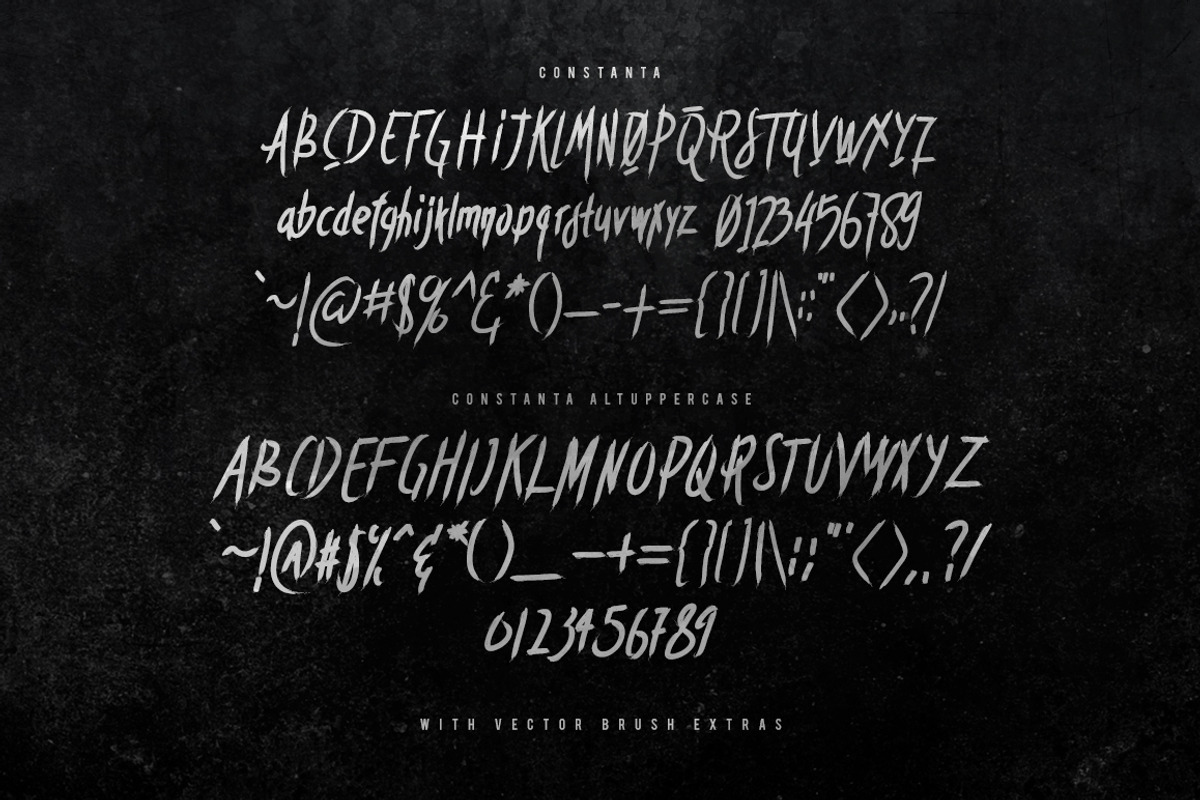 CONSTANTA
ABCDEFGHiJKlMNØPQRSTUVWXYZ
abcdefghijklmnopqrstuvwxyz Ø123456789
`~!@#$%^&*()_-+={}[]|\:;"'<>,.?/
CONSTANTA ALTUPPERCASE
ABCDEFGHIJKLMNOPQRSTUVWXYZ
`~!@#$%^&*()_ -+={}[]|\:;"'<>,.?/
0123456789
WITH VECTOR BRUSH EXTRAS